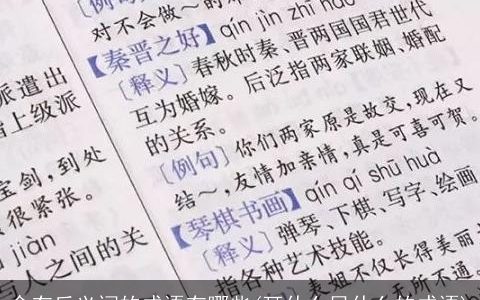 对不会做～的
【秦晋之好】qín jìn zhī hǎo
〔释义〕春秋时秦、晋两国国君世代
互为婚嫁。后泛指两家联姻、婚配
的关系。
〔例句〕你们两家原是故交，现在又
结～，友情加亲情，真是可喜可贺。
【琴棋书画】qín qí shū huà
〔释义〕弹琴、下棋、写字、绘画
指各种艺术技能。
表姐不仅长得美丽
无所不通。
派遣出
上级派
宝剑，到处
很紧张。
jiàn
人之间的关